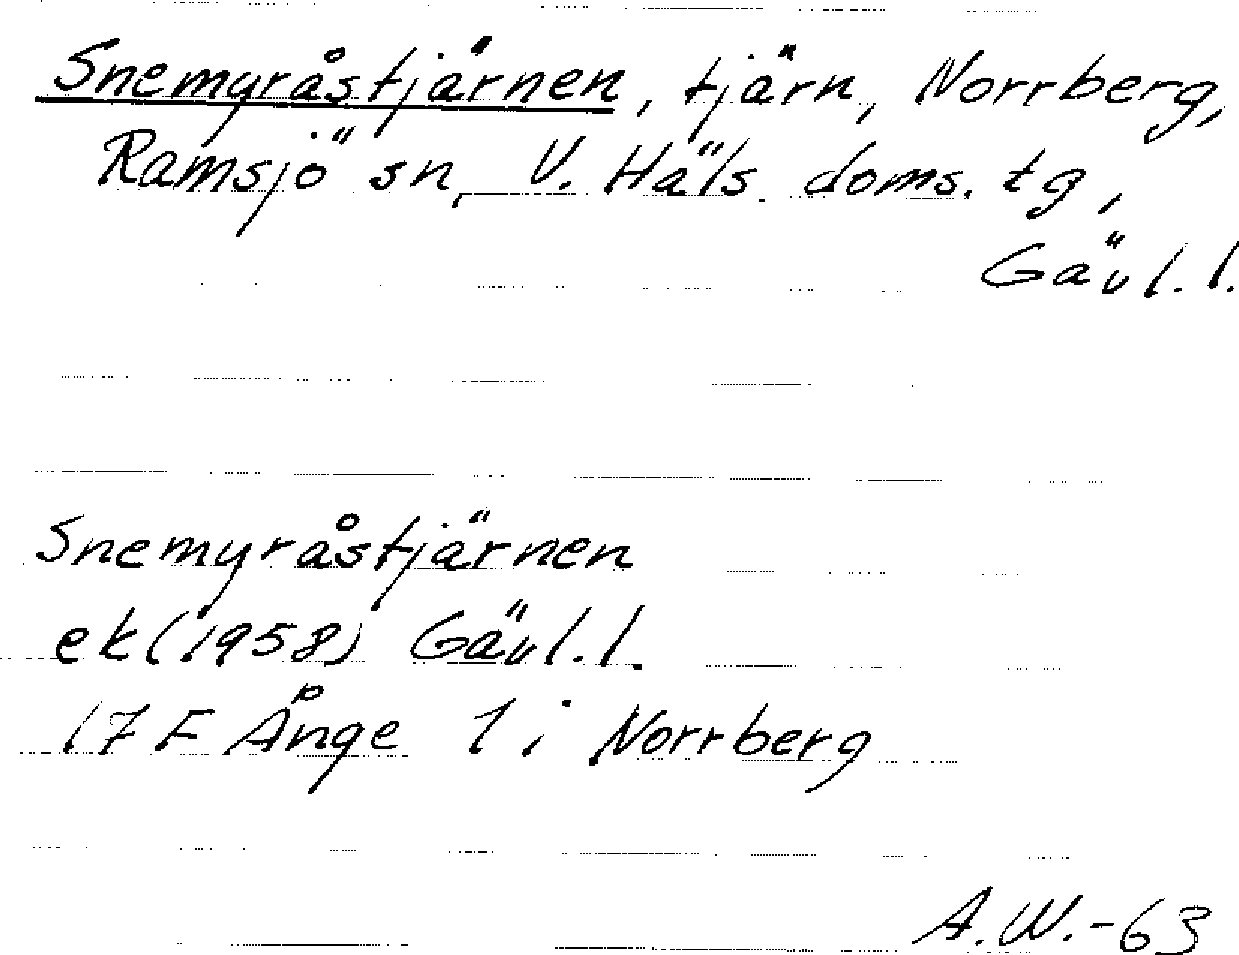 Snemyråstjärnen, tjärn, Norrberg,
Ramsjö sn, V. Häls. doms. tg,
Gävl. l.
Snemyråstjärnen
ek (1958) Gävl. l.
17 F Ånge 1 i Norrberg
A.W.-63